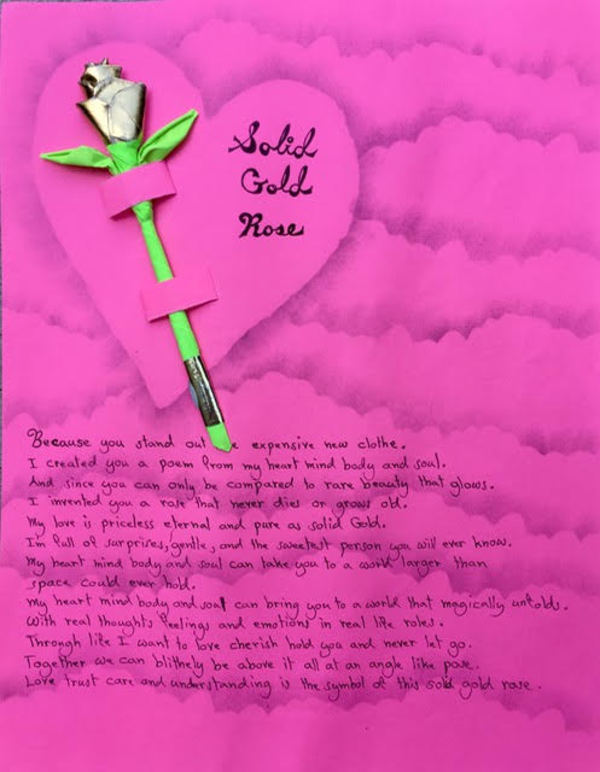 Solid
Gold
Rose
Because you stand out expensive new clothe.
I created you a poem from my heart mind body and soul.
And since you can only be compared to rare beauty that glows.
I invented you a rose that never dies or grows old.
My love is priceless eternal and pure as solid Gold.
I'm full of surprises, gentle, and the sweetest person you will ever know.
My heart mind body and soul can take you to a world larger than
space could ever hold.
My heart mind body and soul can bring you to a world that magically unfolds.
With real thoughts feelings and emotions in real life roles.
Through life I want to love cherish hold you and never let go.
Together we can blithely be above it all at an angle like pose.
Love trust care and understanding is the symbol of this solid gold rose.